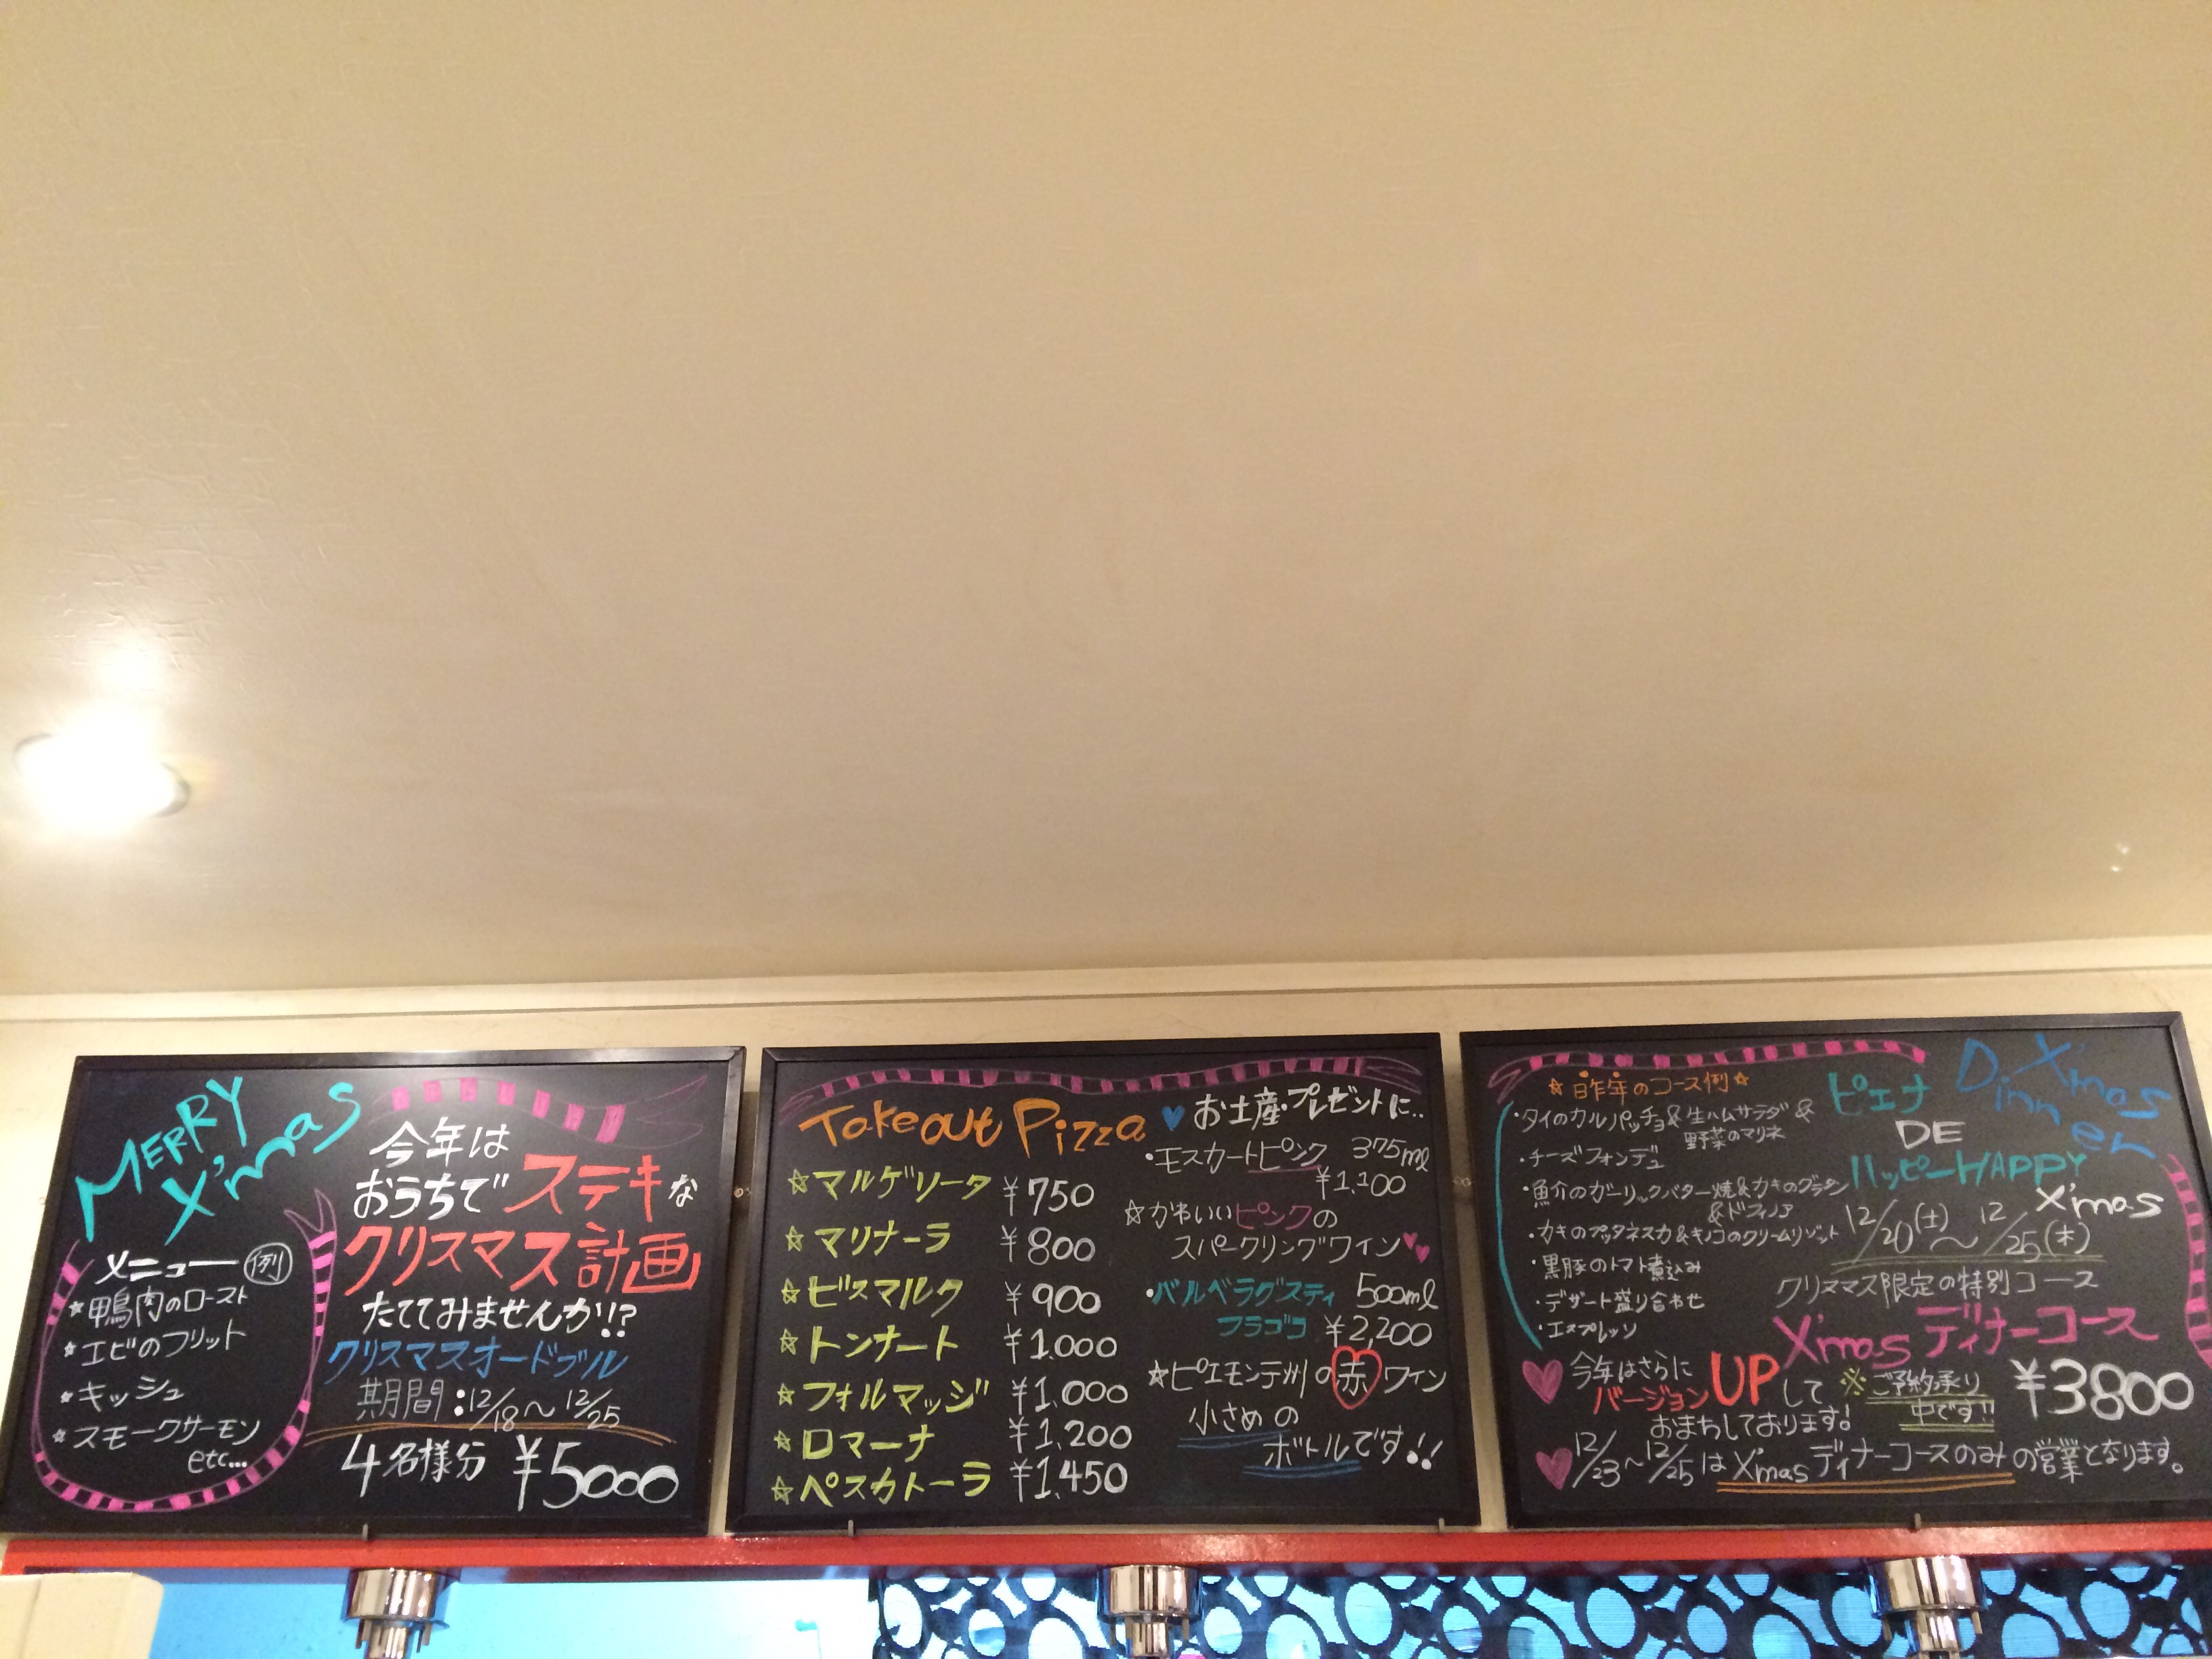 MERRY
X'mas
メニュー 例
☆鴨肉のロースト
☆エビのフリット
☆キッシュ
☆スモークサーモン
etc...
今年は
おうちでステキな
クリスマス計画
たててみませんか!?
クリスマスオードブル
期間:12/18~12/25
4名様分 ¥5000
Takeout Pizza
☆マルゲリータ ¥750
☆マリナーラ ¥800
☆ビスマルク ¥900
☆トンナート ¥1.000
☆フォルマッジ ¥1.000
☆ロマーナ ¥1.200
☆ペスカトーラ ¥1.450
お土産・プレゼントに..
・モスカートピンク 375ml
¥1.100
☆かわいいピンクの
スパークリングワイン
・バルベラダスティ 500ml
フラゴコ ¥2,200
☆ピエモンテ州の赤ワイン
小さめの
ボトルです!!
☆昨年のコース例☆
・タイのカルパッチョ&生ハムサラダ&
野菜のマリネ
・チーズフォンデュ
・魚介のガーリックバター焼&カキのグラタン
&ドフィノア
・カキのプッタネスカ&キノコのクリームリゾット
・黒豚のトマト煮込み
・デザート盛り合わせ
・エスプレッソ
X'mas
Dinner
ピエナ
DE
ハッピーHAPPY
X'mas
12/20(土)~12/25(木)
クリスマス限定の特別コース
X'mas ディナーコース
¥3800
※ご予約承り
中です!!
今年はさらに
バージョンUPして
おまちしております!
12/23~12/25はX'masディナーコースのみの営業となります。